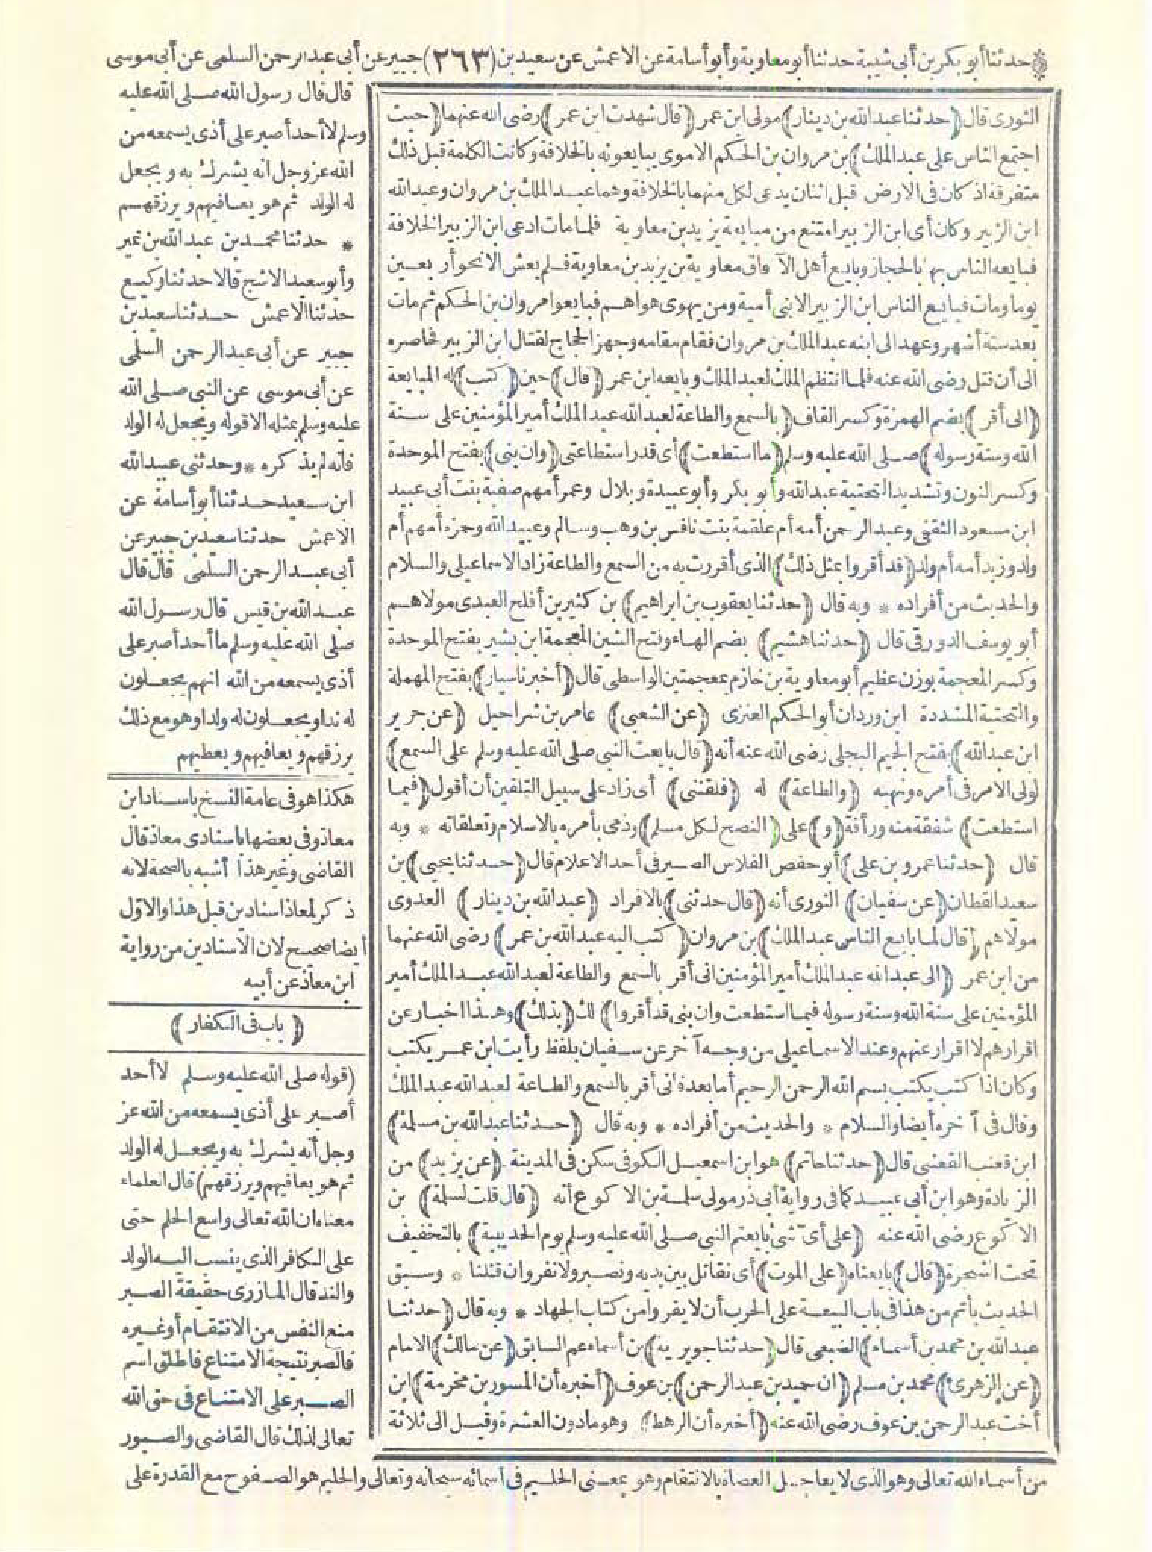 * حدثنا أبو بكر بن أبي شيبة حدثنا أبو معاوية وأبو أسامة عن الاعمش عن سعيد بن (٢٦٣) جبير عن أبي عبد الرحمن السلمي عن أبي موسى
قال قال رسول الله صلى الله عليه
وسلم لا أحد أصبر على أذى يسمعه من
الله عز وجل انه يشرك به ويجعل
له الولد ثم هو يعافيهم ويرزقهم
* حدثنا محمد بن عبد الله بن نمير
وأبو سعيد الاشج قالا حدثنا وكيع
حدثنا الاعمش حدثنا سعيد بن
جبير عن أبي عبد الرحمن السلمي
عن أبي موسى عن النبي صلى الله
عليه وسلم بمثله الا قوله ويجعل له الولد
فانه لم يذكره * وحدثني عبيد الله
ابن سعيد حدثنا أبو أسامة عن
الاعمش حدثنا سعيد بن جبير عن
أبي عبد الرحمن السلمي قال قال
عبد الله بن قيس قال رسول الله
صلى الله عليه وسلم ما أحد أصبر على
أذى يسمعه من الله انهم يجعلون
له ندا ويجعلون له ولدا وهو مع ذلك
يرزقهم ويعافيهم ويعطيهم
هكذا هو في عامة النسخ باسناد ابن
معاذ وفي بعضها باسنادي معاذ قال
القاضي وغير هذا أشبه بالصحة لانه
ذكر لمعاذ اسنادين قبل هذا والاول
أيضا صحيح لان الاسنادين من رواية
ابن معاذ عن أبيه
(باب في الكفار)
(قوله صلى الله عليه وسلم لا أحد
أصبر على أذى يسمعه من الله عز
وجل أنه يشرك به ويجعل له الولد
ثم هو يعافيهم ويرزقهم) قال العلماء
معناه ان الله تعالى واسع الحلم حتى
على الكافر الذي ينسب اليه الولد
والند قال المازري حقيقة الصبر
منع النفس من الانتقام أو غيره
فالصبر نتيجة الامتناع فاطلق اسم
الصبر على الامتناع في حق الله
تعالى لذلك قال القاضي والصبور
الثوري قال (حدثنا عبد الله بن دينار) مولى ابن عمر (قال شهدت ابن عمر) رضي الله عنهما (حيث
اجتمع الناس على عبد الملك) بن مروان بن الحكم الاموي يبايعونه بالخلافة وكانت الكلمة قبل ذلك
متفرقة اذ كان في الارض قبل اثنان يدعى لكل منهما بالخلافة وهما عبد الملك بن مروان وعبد الله
ابن الزبير وكان أي ابن الزبير امتنع من مبايعة يزيد بن معاوية فلما مات ادعى ابن الزبير الخلافة
فبايعه الناس بها بالحجاز وبايع أهل الآفاق معاوية بن يزيد بن معاوية فلم يعش الا نحو أربعين
يوما ومات فبايع الناس ابن الزبير الا بني أمية ومن يهوى هواهم فبايعوا مروان بن الحكم ثم مات
بعد ستة أشهر وعهد الى ابنه عبد الملك بن مروان فقام مقامه وجهز الحجاج لقتال ابن الزبير فحاصره
الى أن قتل رضي الله عنه فلما انتظم الملك لعبد الملك وبايعه ابن عمر (قال) حين (كتب) له المبايعة
(اني أقر) بضم الهمزة وكسر القاف (بالسمع والطاعة لعبد الله عبد الملك أمير المؤمنين على سنة
الله وسنة رسوله) صلى الله عليه وسلم (ما استطعت) أي قدر استطاعتي (وان بني) بفتح الموحدة
وكسر النون وتشديد التحتية عبد الله وأبو بكر وأبو عبيدة وبلال وعمر أمهم صفية بنت أبي عبيد
ابن مسعود الثقفي وعبد الرحمن أمه أم علقمة بنت نافس بن وهب وسالم وعبيد الله وحمزة أمهم أم
ولد وزيد أمه أم ولد (قد أقروا بمثل ذلك) الذي أقررت به من السمع والطاعة زاد الاسماعيلي والسلام
والحديث من أفراده * وبه قال (حدثنا يعقوب بن ابراهيم) بن كثير بن أفلح العبدي مولاهم
أبو يوسف الدورقي قال (حدثنا هشيم) بضم الهاء وفتح الشين المعجمة ابن بشير بفتح الموحدة
وكسر المعجمة بوزن عظيم أبو معاوية بن خازم بمعجمتين الواسطي قال (أخبرنا سيار) بفتح المهملة
والتحتية المشددة ابن وردان أبو الحكم العنزي (عن الشعبي) عامر بن شراحيل (عن جرير
ابن عبد الله) بفتح الجيم البجلي رضي الله عنه أنه (قال بايعت النبي صلى الله عليه وسلم على السمع)
لولي الامر في أمره ونهيه (والطاعة) له (فلقنني) أي زاد على سبيل التلقين أن أقول (فيما
استطعت) شفقة منه ورأفة (و) على (النصح لكل مسلم) وذمي بأمره بالاسلام وتعلقاته * وبه
قال (حدثنا عمرو بن علي) أبو حفص الفلاس الصيرفي أحد الاعلام قال (حدثنا يحيى) بن
سعيد القطان (عن سفيان) الثوري أنه (قال حدثني) بالافراد (عبد الله بن دينار) العدوي
مولاهم (قال لما بايع الناس عبد الملك) بن مروان (كتب اليه عبد الله بن عمر) رضي الله عنهما
من ابن عمر (الى عبد الله عبد الملك أمير المؤمنين اني أقر بالسمع والطاعة لعبد الله عبد الملك أمير
المؤمنين على سنة الله وسنة رسوله فيما استطعت وان بني قد أقروا) لك (بذلك) وهذا اخبار عن
اقرارهم لا اقرار عنهم وعند الاسماعيلي من وجه آخر عن سفيان بلفظ رأيت ابن عمر يكتب
وكان اذا كتب يكتب بسم الله الرحمن الرحيم أما بعد فاني أقر بالسمع والطاعة لعبد الله عبد الملك
وقال في آخره أيضا والسلام * والحديث من أفراده * وبه قال (حدثنا عبد الله بن مسلمة)
ابن قعنب القعنبي قال (حدثنا حاتم) هو ابن اسمعيل الكوفي سكن في المدينة (عن يزيد) من
الزيادة وهو ابن أبي عبيد كما في رواية أبي ذر مولى سلمة بن الاكوع أنه (قال قلت لسلمة) بن
الاكوع رضي الله عنه (على أي شئ بايعتم النبي صلى الله عليه وسلم يوم الحديبية) بالتخفيف
تحت الشجرة (قال) بايعناه (على الموت) أي نقاتل بين يديه ونصبر ولا نفر وان قتلنا * وسبق
الحديث بأتم من هذا في باب البيعة على الحرب أن لا يفروا من كتاب الجهاد * وبه قال (حدثنا
عبد الله بن محمد بن أسماء) الضبعي قال (حدثنا جويرية) بن أسماء عم السابق (عن مالك) الامام
(عن الزهري) محمد بن مسلم (ان حميد بن عبد الرحمن) بن عوف (أخبره أن المسور بن مخرمة) ابن
أخت عبد الرحمن بن عوف رضي الله عنه (أخبره أن الرهط) وهو ما دون العشرة وقيل الى ثلاثة
من أسماء الله تعالى وهو الذي لا يعاجل العصاة بالانتقام وهو بمعنى الحليم في أسمائه سبحانه وتعالى والحليم هو الصفوح مع القدرة على